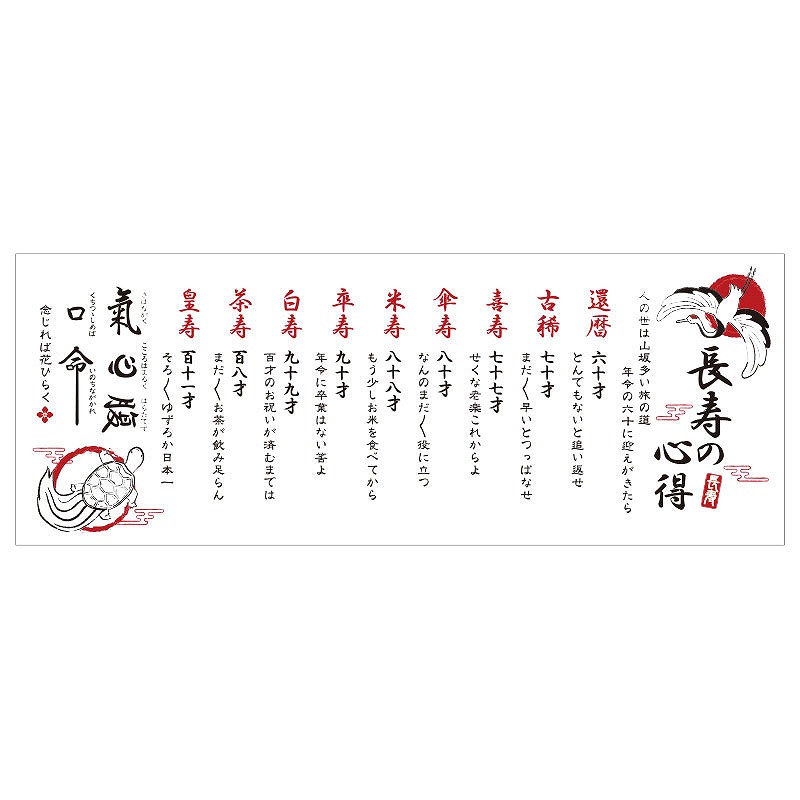 長寿の
心得
長寿
人の世は山坂多い旅の道
年令の六十に迎えがきたら
還暦 六十才
とんでもないと追い返せ
古稀 七十才
まだ〱早いとつっぱなせ
喜寿 七十七才
せくな老楽これからよ
傘寿 八十才
なんのまだ〱役に立つ
米寿 八十八才
もう少しお米を食べてから
卒寿 九十才
年令に卒業はない筈よ
白寿 九十九才
百才のお祝いが済むまでは
茶寿 百八才
まだ〱お茶が飲み足らん
皇寿 百十一才
そろ〱ゆずろか日本一
氣 心 腹
きはながく こころはまるく はらたてず
口 命
くちつつしめば いのちながかれ
念じれば花ひらく